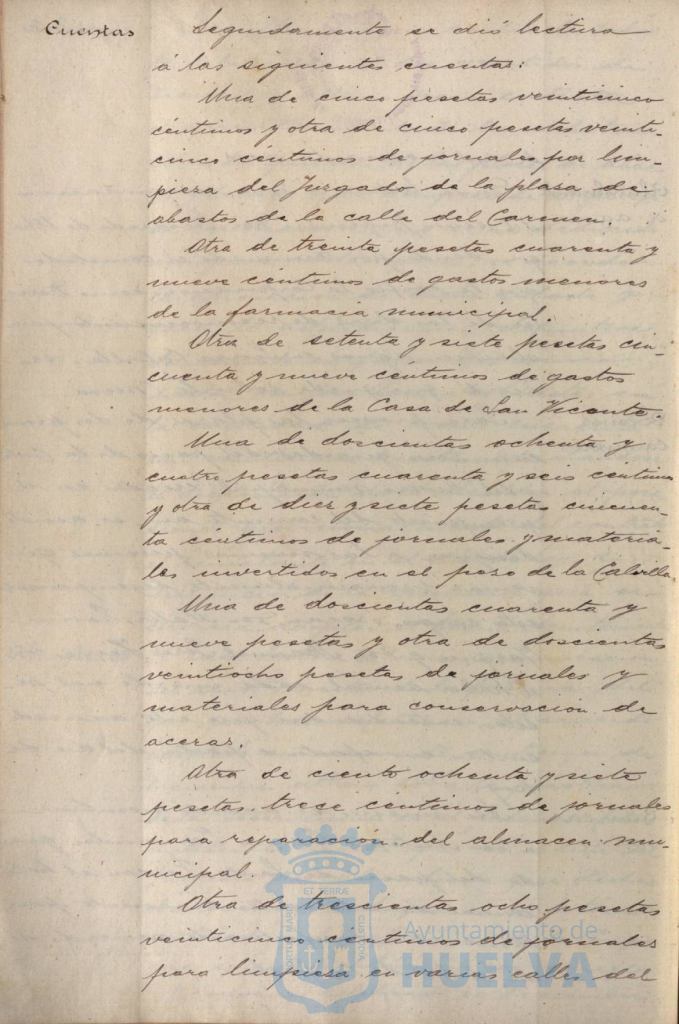 Cuentas
Seguidamente se dió lectura
á las siguientes cuentas:
Una de cinco pesetas veinticinco
céntimos y otra de cinco pesetas veinti-
cinco céntimos de jornales por lim-
pieza del Juzgado de la plaza de
abastos de la calle del Carmen.
Otra de treinta pesetas cuarenta y
nueve céntimos de gastos menores
de la farmacia municipal.
Otra de setenta y siete pesetas cin-
cuenta y nueve céntimos de gastos
menores de la Casa de San Vicente.
Una de doscientas ochenta y
cuatro pesetas cuarenta y seis céntimos
y otra de diez y siete pesetas cincuen-
ta céntimos de jornales y materia-
les invertidos en el pozo de la Calvilla.
Una de doscientas cuarenta y
nueve pesetas y otra de doscientas
veintiocho pesetas de jornales y
materiales para conservacion de
aceras.
Otra de ciento ochenta y siete
pesetas trece céntimos de jornales
para reparación del almacen mu-
nicipal.
Otra de trescientas ocho pesetas
veinticinco céntimos de jornales
para limpieza en varias calles del
ET TERRÆ
PORTUS MARIS
CUSTODIA
Ayuntamiento de
HUELVA